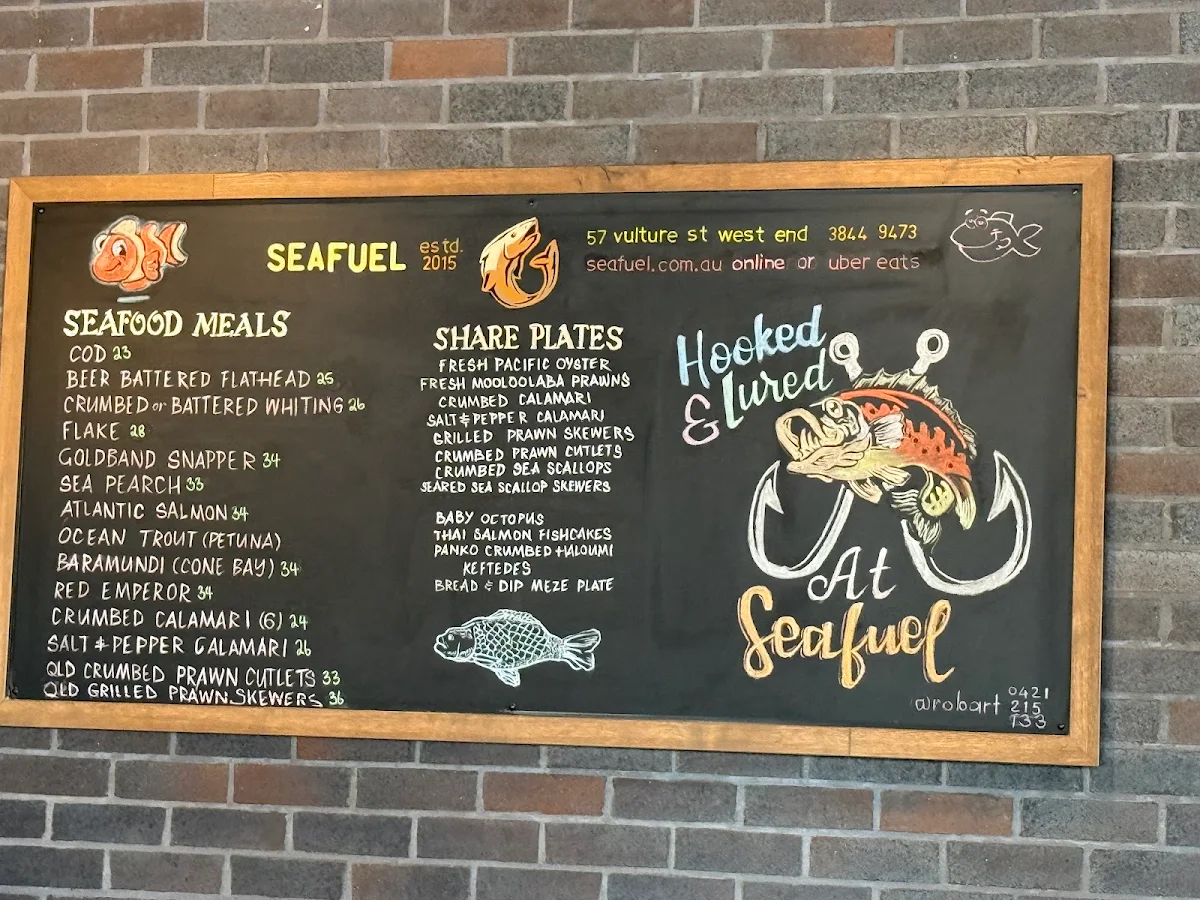 SEAFUEL estd. 2015
57 vulture st west end 3844 9473
seafuel.com.au online or uber eats
SEAFOOD MEALS
COD 23
BEER BATTERED FLATHEAD 25
CRUMBED or BATTERED WHITING 26
FLAKE 28
GOLDBAND SNAPPER 34
SEA PEARCH 33
ATLANTIC SALMON 34
OCEAN TROUT (PETUNA)
BARAMUNDI (CONE BAY) 34
RED EMPEROR 34
CRUMBED CALAMARI (6) 24
SALT & PEPPER CALAMARI 26
QLD CRUMBED PRAWN CUTLETS 33
QLD GRILLED PRAWN SKEWERS 36
SHARE PLATES
FRESH PACIFIC OYSTER
FRESH MOOLOOLABA PRAWNS
CRUMBED CALAMARI
SALT & PEPPER CALAMARI
GRILLED PRAWN SKEWERS
CRUMBED PRAWN CUTLETS
CRUMBED SEA SCALLOPS
SEARED SEA SCALLOP SKEWERS
BABY OCTOPUS
THAI SALMON FISHCAKES
PANKO CRUMBED HALOUMI
KEFTEDES
BREAD & DIP MEZE PLATE
Hooked
& Lured
At
Seafuel
@robart 0421
215
733